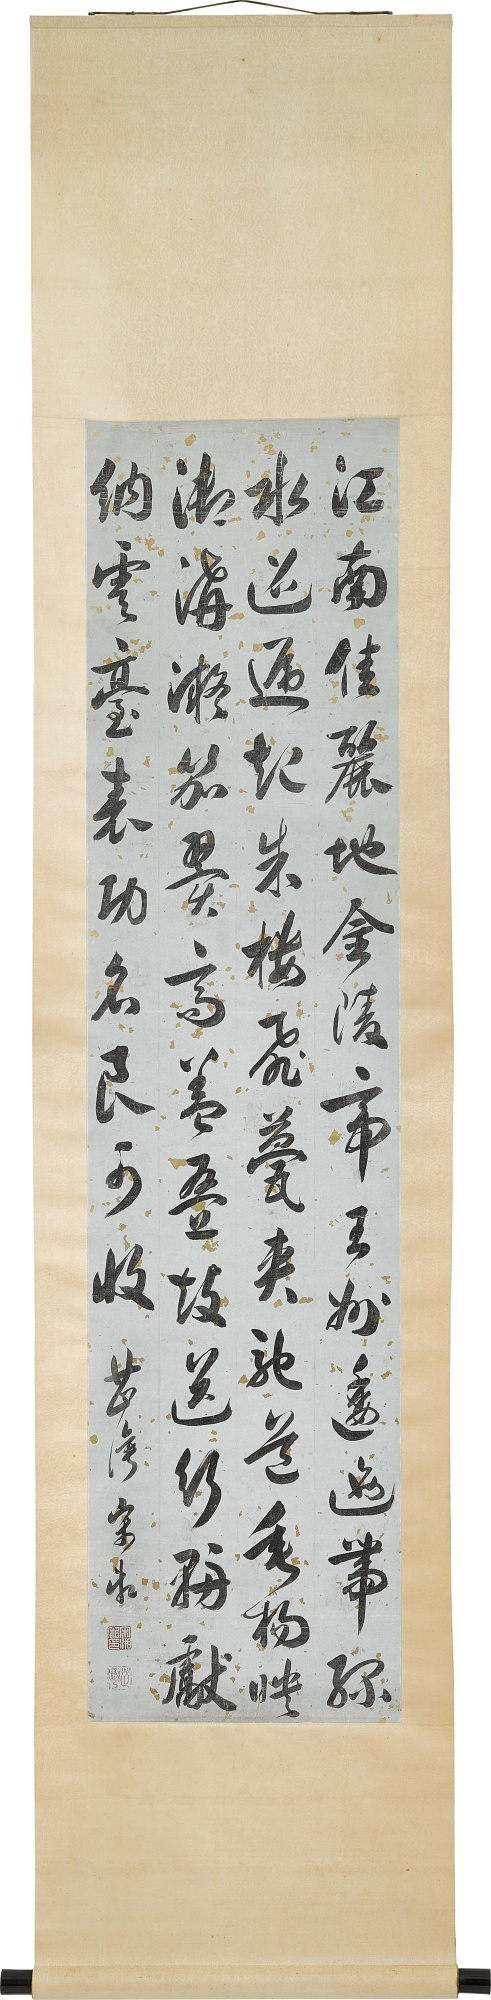 江南佳麗地金陵帝王州逶迤帶綠
水迢遞起朱樓飛甍夾馳道垂楊映
御溝凝笳翼高蓋疊鼓送行輈獻
納雲臺表功名良可收 芷灣宋湘